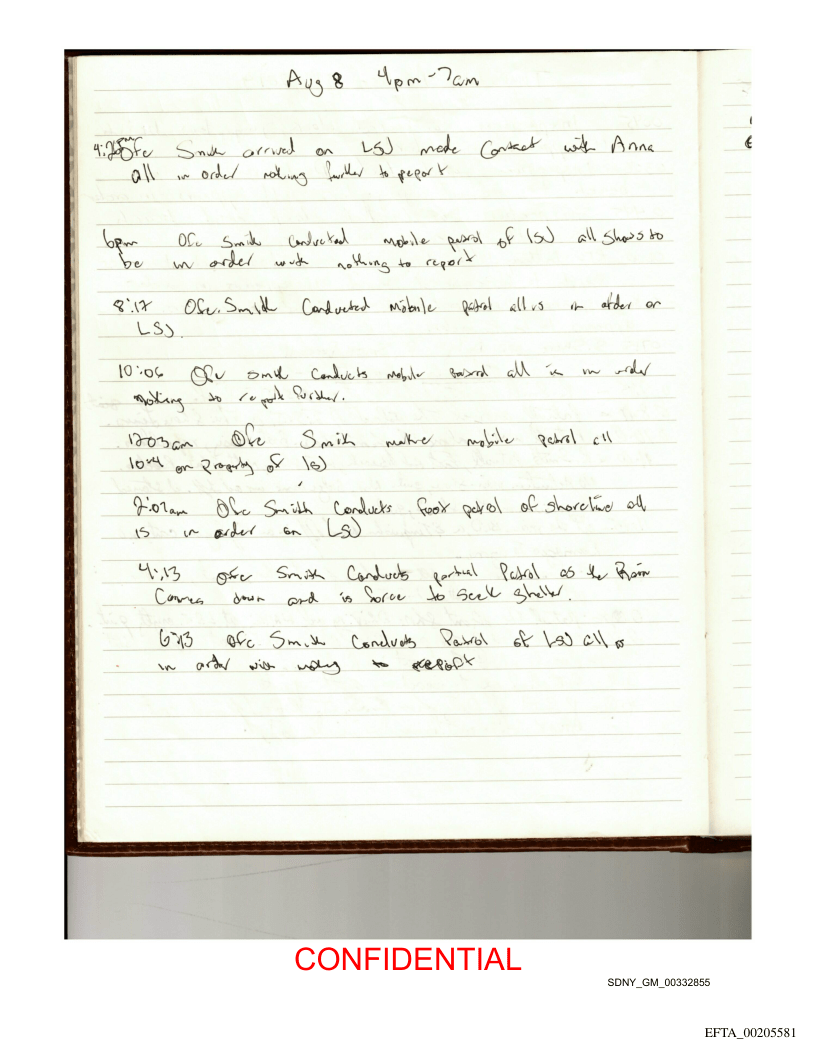 Aug 8 4pm - 7am
4:25pm Ofc Smith arrived on LSJ made Contact with Anna
all in order nothing further to report
6pm Ofc Smith Conducted mobile patrol of LSJ all shows to
be in order with nothing to report
8:17 Ofc. Smith Conducted mobile patrol all is in order on
LSJ.
10:06 Ofc Smith Conducts mobile patrol all is in order
nothing to report further.
1203am Ofc Smith makes mobile patrol all
10-4 on Property of LSJ
2:02am Ofc Smith Conducts foot patrol of shoreline all
is in order on LSJ
4:13 Ofc Smith Conducts partial Patrol as the Rain
Comes down and is force to seek shelter.
6:13 Ofc Smith Conducts Patrol of LSJ all is
in order with nothing to report
CONFIDENTIAL
SDNY_GM_00332855
EFTA_00205581